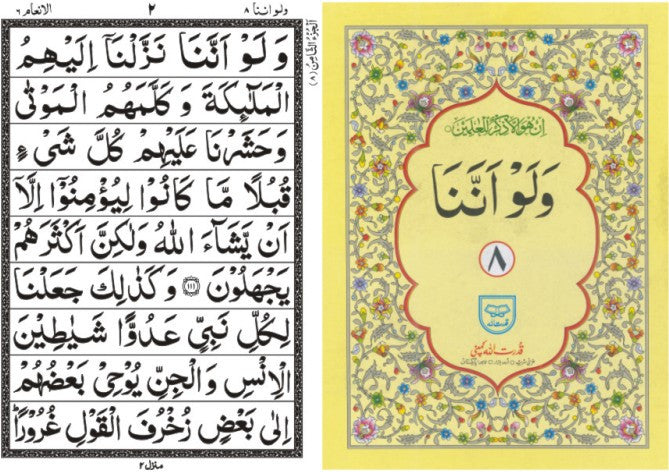 ولو اننا ٨
٢
الانعام ٦
الجزء الثامن (٨)
وَلَوْ اَنَّنَا نَزَّلْنَاۤ اِلَيْهِمُ
الْمَلٰٓئِكَةَ وَ كَلَّمَهُمُ الْمَوْتٰى
وَحَشَرْنَا عَلَيْهِمْ كُلَّ شَىْءٍ
قُبُلًا مَّا كَانُوْا لِيُؤْمِنُوْۤا اِلَّاۤ
اَنْ يَّشَآءَ اللّٰهُ وَلٰكِنَّ اَكْثَرَهُمْ
يَجْهَلُوْنَ ﴿١١١﴾ وَ كَذٰلِكَ جَعَلْنَا
لِكُلِّ نَبِىٍّ عَدُوًّا شَيٰطِيْنَ
الْاِنْسِ وَ الْجِنِّ يُوْحِىْ بَعْضُهُمْ
اِلٰى بَعْضٍ زُخْرُفَ الْقَوْلِ غُرُوْرًا ؕ
منزل ٢
اِنْ هُوَ اِلَّا ذِكْرٌ لِّلْعٰلَمِيْنَ
وَلَوْ اَنَّنَا
٨
قدرت اللہ
قدرت اللہ کمپنی